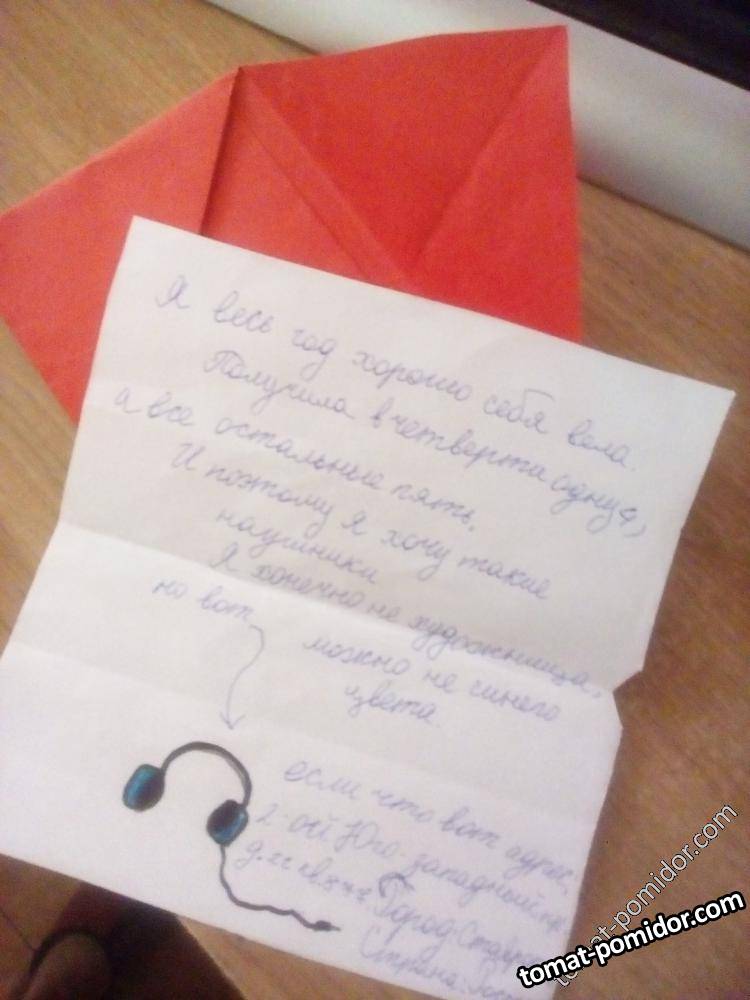 Я весь год хорошо себя вела.
Получила в четверти одну 4,
а все остальные пять.
И поэтому я хочу такие
наушники
Я конечно не художница,
но вот
можно не синего
цвета.
если что вот адрес,
2-ой Юго-западный
Город:
Страна:
tomat-pomidor.com
tomat-pomidor.com